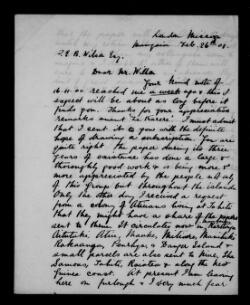 London Mission
Mangaia Feb. 26th 01.
F. E. B. Esq.
Dear Mr.
Your kind note of
reached me a week ago & this I
expect will be about as long before it
finds you. Thanks for your
remarks anent "Te Karere". I must admit
that I sent it to you with the definite
hope of drawing a subscription. You are
quite right the paper during its three
years of existence has done a large &
thoroughly good work & is being more &
more appreciated by the people not only
of this group but throughout the islands
Only the other day I received a request
from a colony of Atiuans living in Tahiti
that they might have a share of the papers
sent to them. It circulates now in Rarotonga
Aitutaki, Atiu, Mauke, Mitiaro, Manihiki
Rakaanga, Penrhyn & Danger Island &
small parcels are also sent to Niue, The
Samoas, Tahiti, & along the New
Guinea coast. At present I am leaving
here on furlough & I very much fear